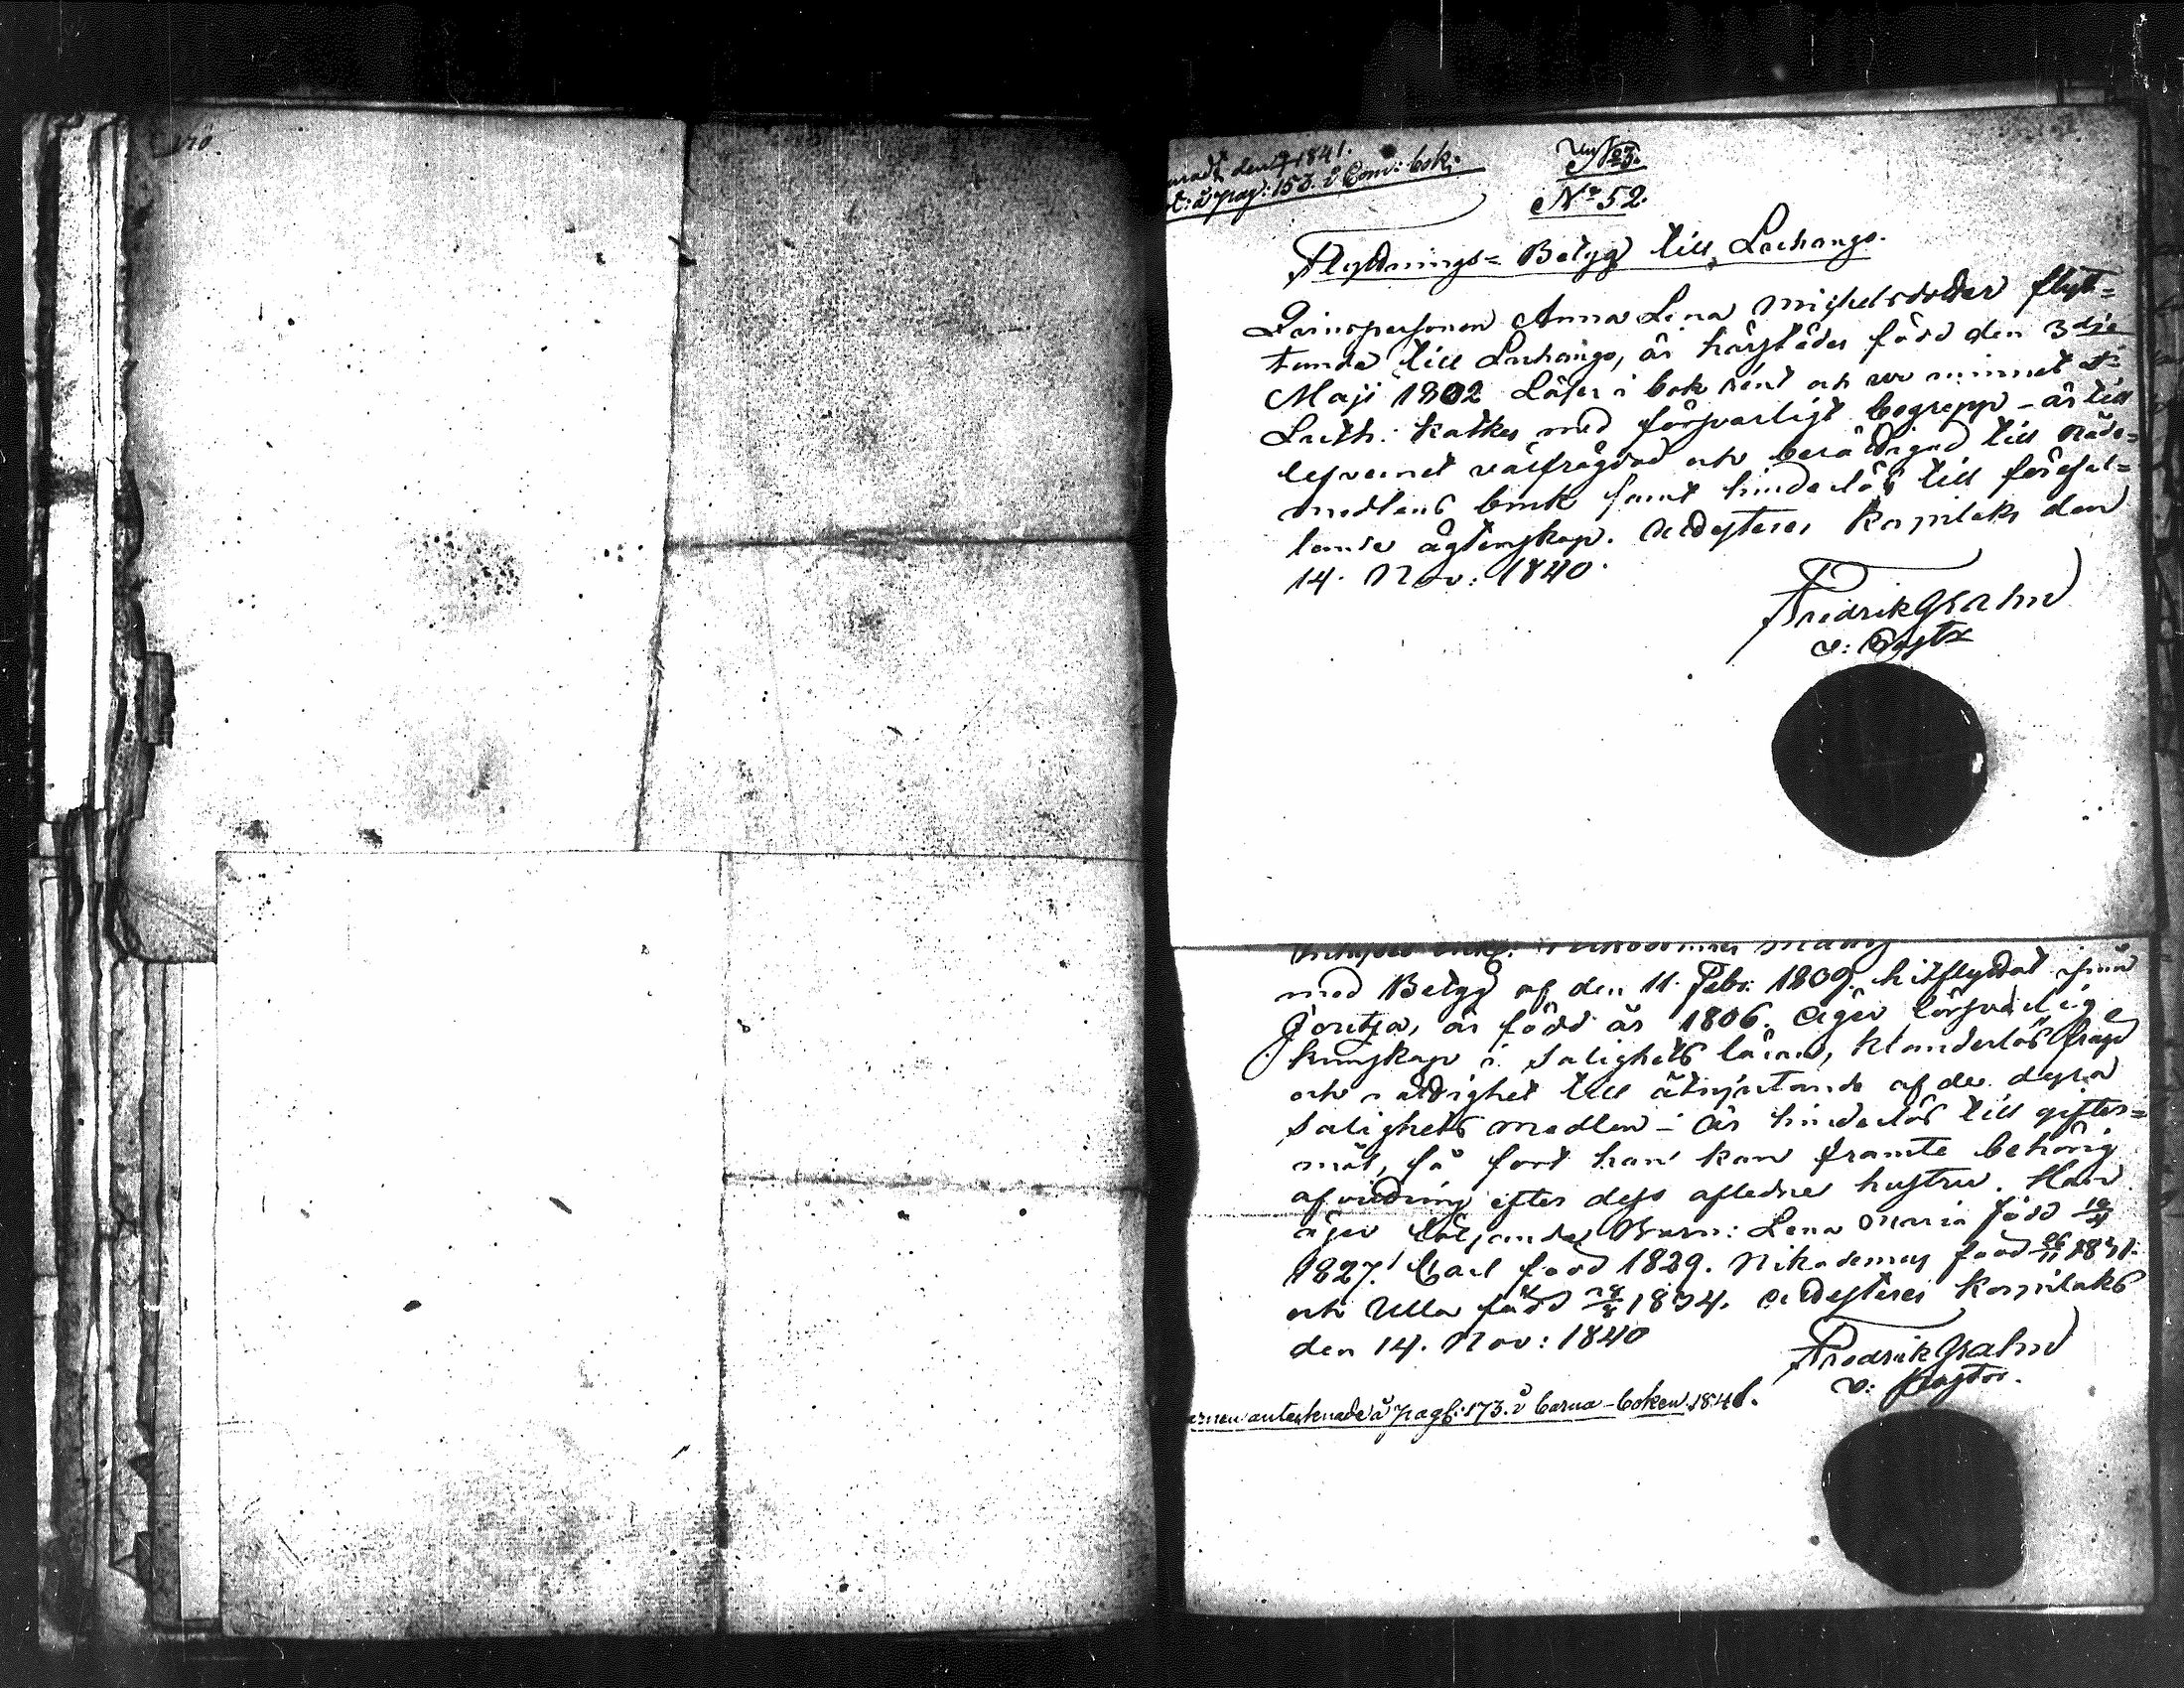 170.
den 1841.
å pag: 153. i Com: bok.
N:o 52.
Flyttnings= Betyg till Luhango.
Qvinspersonen Anna Lena Michelsdotter flyt=
tande till Luhango, är härstädes född den 3dje
Maji 1802 Läser i bok rent och ur minnet
Luth: Katkes med försvarligt begrepp – är till
lefvernet välfrägdad och berättigad till Nåde=
medlens bruk samt hinderlös till förefal=
lande ägtenskap. Attesterar Korpilaks den
14. Nov: 1840.
Fredrik Grahn
v: Pastor
med Betyg af den 11. Febr: 1809. hitflyttat från
Joutsa, är född år 1806. Äger försvarlig
kunskap i Salighets läran, klanderlös frägd
och rättighet till åtnjutande af de dyra
Salighets medlen – är hinderlös till gifter=
mål, så fort han kan framte behörig
afvittring efter dess aflednе hustru. Han
äger följande Barn: Lena Maria född
1827. Carl född 1829. Nikodemus född 26/11 1831.
och Ulla född 1834. Attesterar Korpilaks
den 14. Nov: 1840
Fredrik Grahn
v: Pastor.
antecknade å pag: 173. i barna-boken 1841.